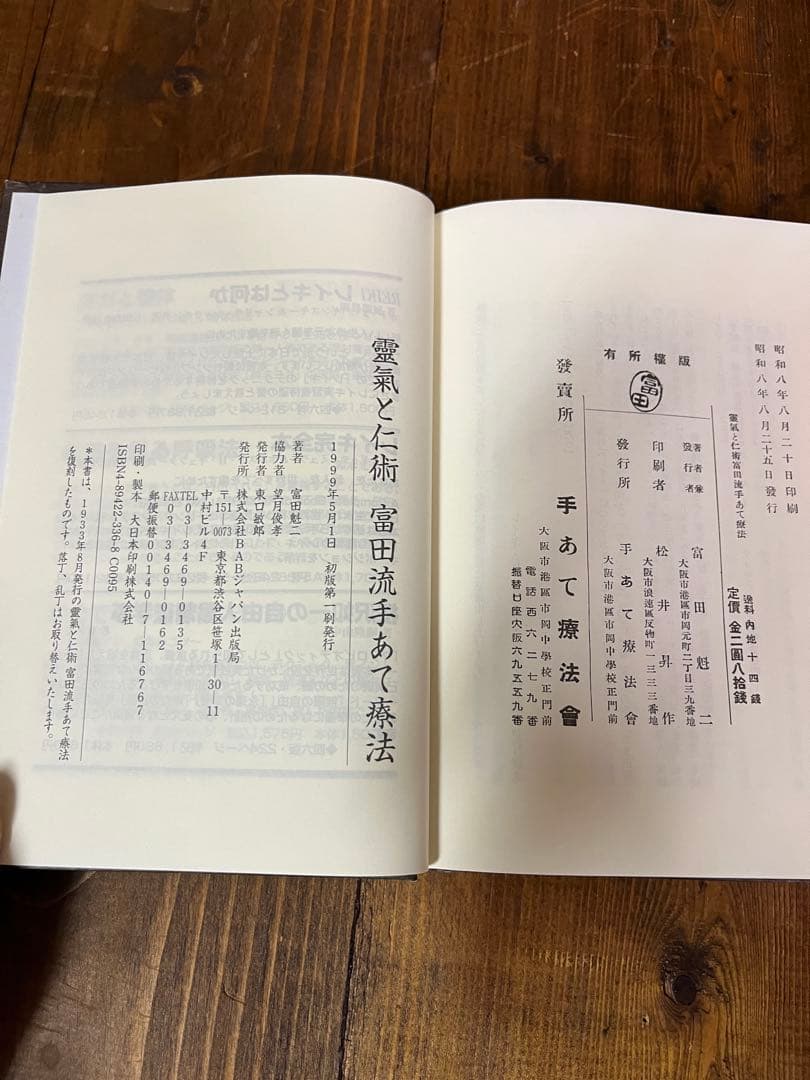 昭和八年八月二十日印刷
昭和八年八月二十五日発行
靈氣と仁術富田流手あて療法
送料内地十四錢
定價金二圓八拾錢
著者兼發行者 富田魁二
大阪市港區市岡元町二丁目三九番地
印刷者 松井昇作
大阪市浪速區反物町一三三三番地
發行所 手あて療法會
大阪市港區市岡中學校正門前
版權所有
富田
發賣所 手あて療法會
大阪市港區市岡中學校正門前
電話西六二七九番
振替口座大阪六九五五九番
靈氣と仁術 富田流手あて療法
1999年5月1日 初版第一刷発行
著者 富田魁二
協力者 望月俊孝
発行者 東口敏郎
発行所 株式会社BABジャパン出版局
〒151―0073 東京都渋谷区笹塚1―30―11
中村ビル4F
TEL 03―3469―0135
FAX 03―3469―0162
郵便振替00140―7―116767
印刷・製本 大日本印刷株式会社
ISBN4-89422-336-8 C0095
*本書は、1933年8月発行の靈氣と仁術 富田流手あて療法
を復刻したものです。落丁、乱丁はお取り替えいたします。